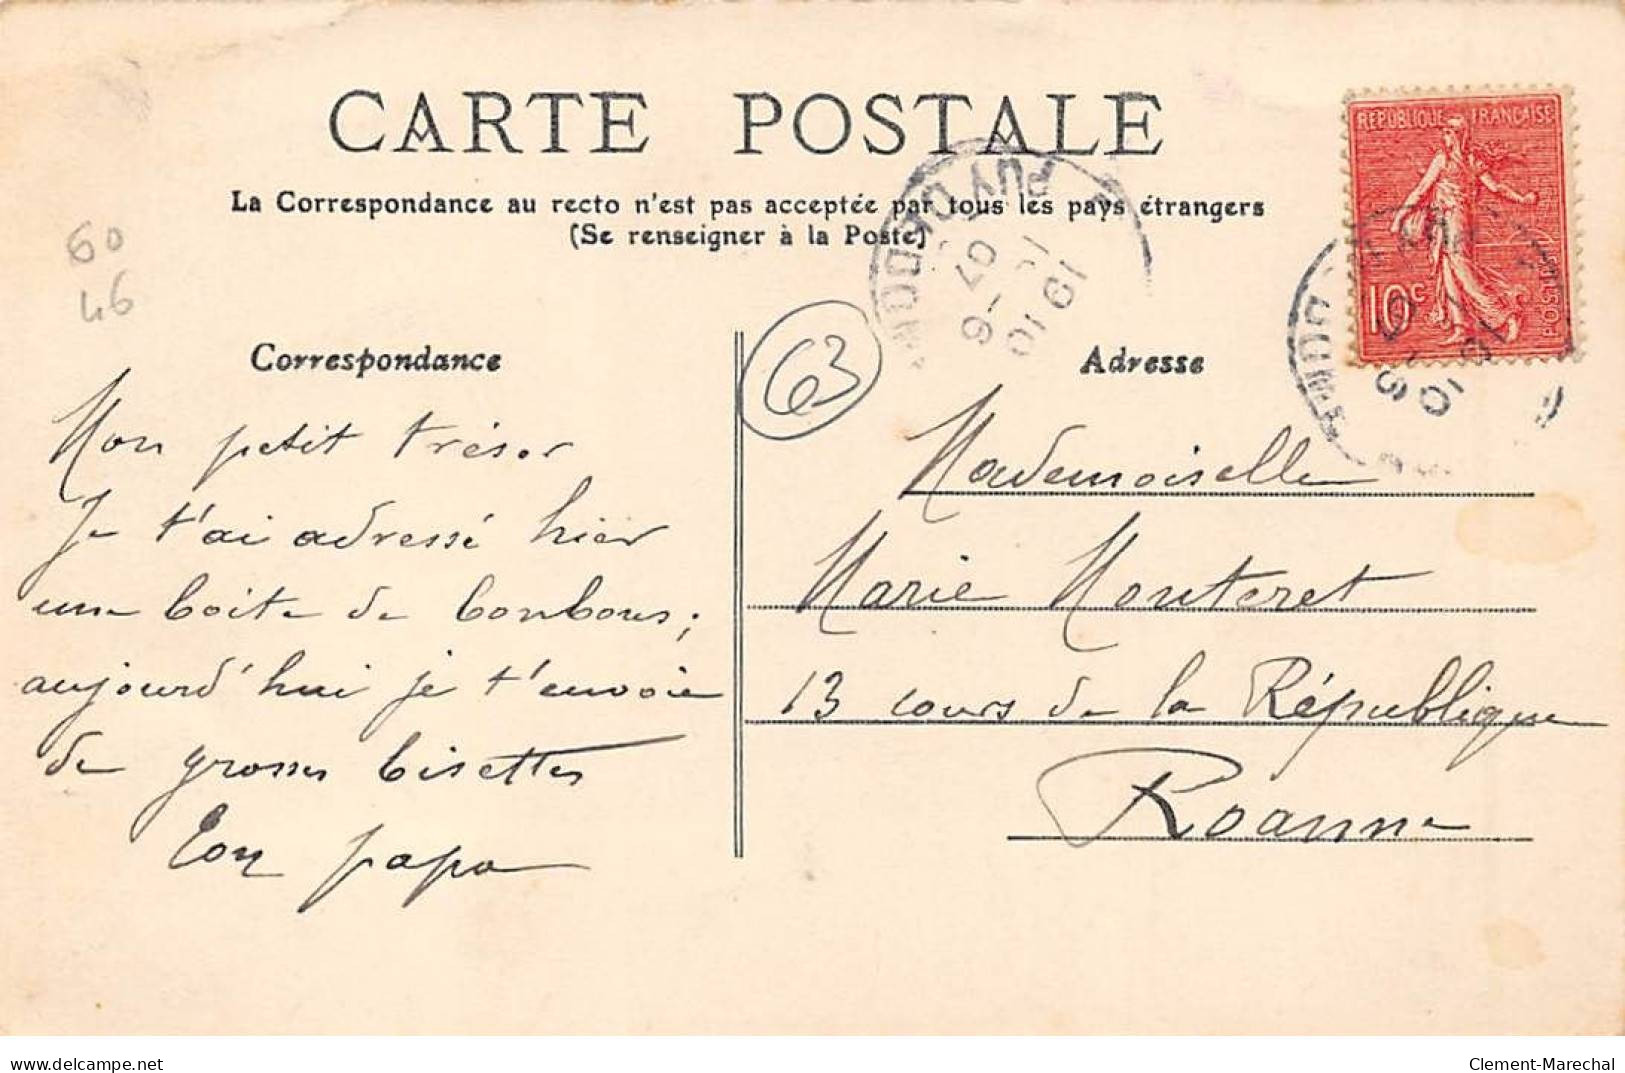 CARTE POSTALE
La Correspondance au recto n'est pas acceptée par tous les pays étrangers
(Se renseigner à la Poste)
RÉPUBLIQUE FRANÇAISE
10c
POSTES
PUY DE DOME
19 10
6 - 1
07
DOME
60
46
63
Correspondance
Mon petit trésor
Je t'ai adressé hier
une boite de bonbons ;
aujourd'hui je t'envoie
de grosses bisettes
Ton papa
Adresse
Mademoiselle
Marie Monteret
13 cours de la République
Roanne
delcampe.net
Clement-Marechal